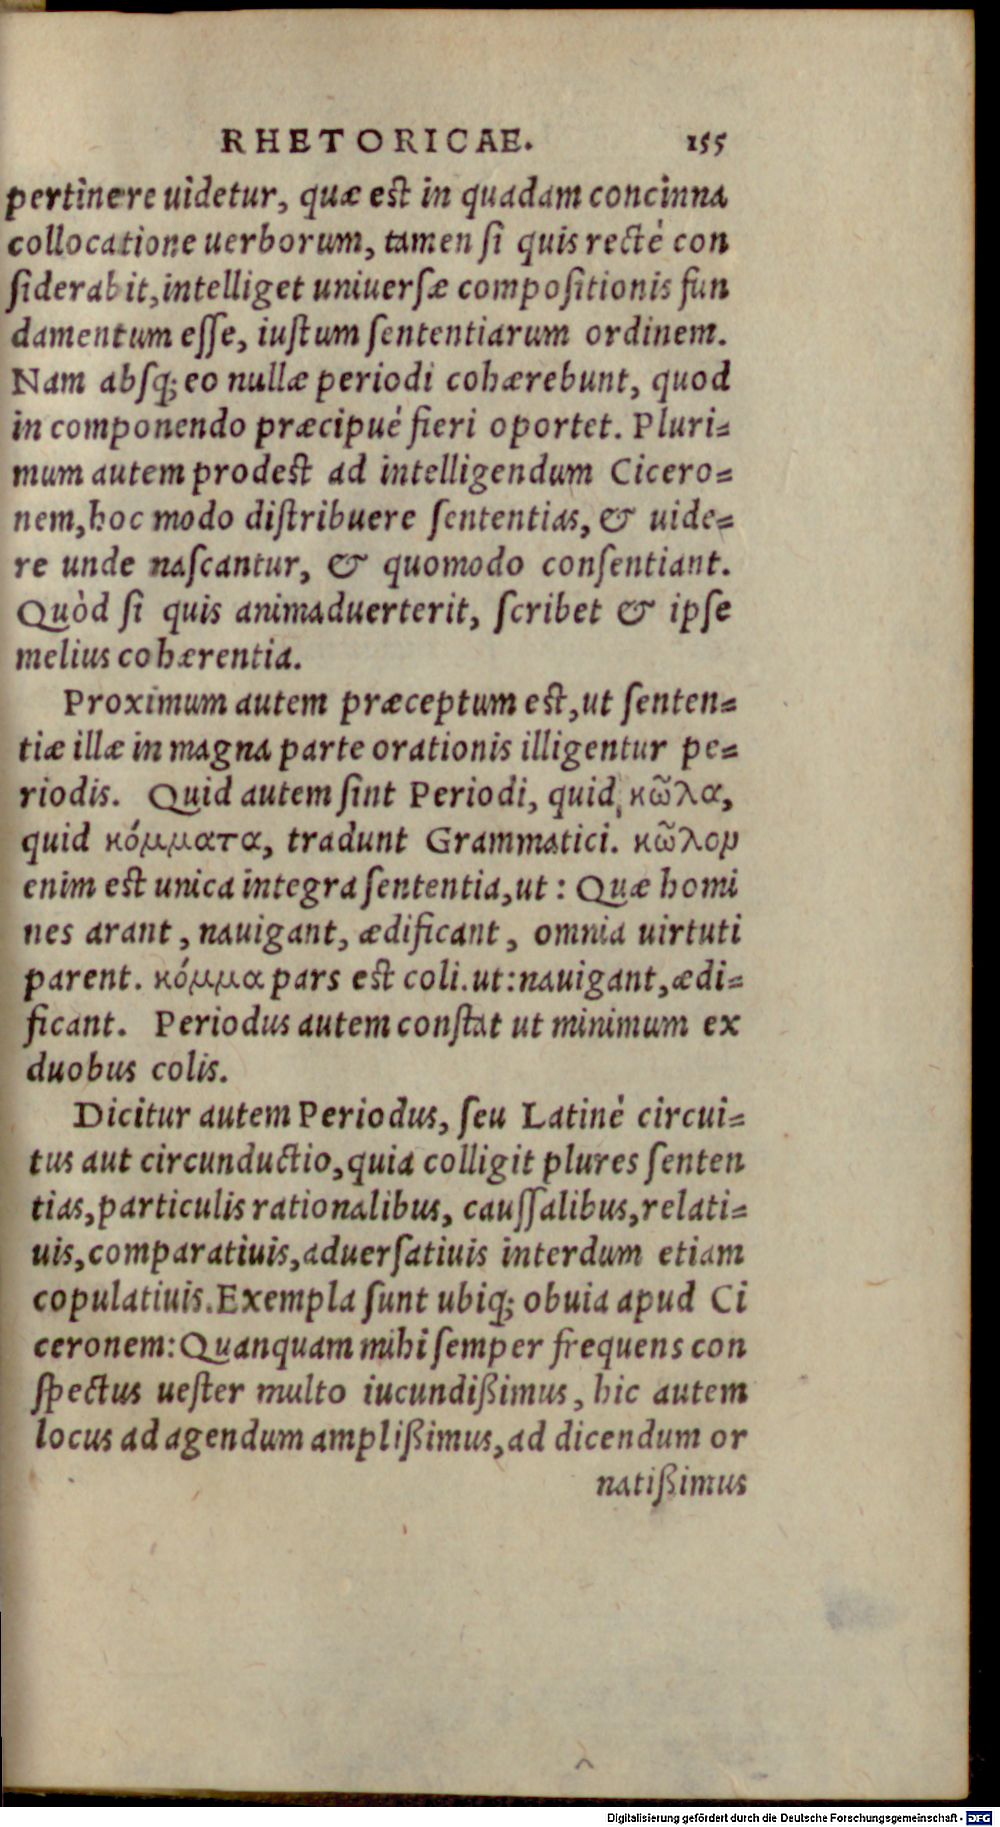 RHETORICAE. 155
pertinere uidetur, quæ est in quadam concinna
collocatione uerborum, tamen ſi quis rectè con
ſiderabit, intelliget uniuerſæ compoſitionis fun
damentum eſſe, iuſtum ſententiarum ordinem.
Nam abſq; eo nullæ periodi cohærebunt, quod
in componendo præcipuè fieri oportet. Pluri=
mum autem prodest ad intelligendum Cicero=
nem, hoc modo diſtribuere ſententias, & uide=
re unde naſcantur, & quomodo conſentiant.
Quòd ſi quis animaduerterit, ſcribet & ipſe
melius cohærentia.
Proximum autem præceptum est, ut ſenten=
tiæ illæ in magna parte orationis illigentur pe=
riodis. Quid autem ſint Periodi, quid κῶλα,
quid κόμματα, tradunt Grammatici. κῶλον
enim est unica integra ſententia, ut: Quæ homi
nes arant, nauigant, ædificant, omnia uirtuti
parent. κόμμα pars est coli. ut: nauigant, ædi=
ficant. Periodus autem conſtat ut minimum ex
duobus colis.
Dicitur autem Periodus, ſeu Latinè circui=
tus aut circunductio, quia colligit plures ſenten
tias, particulis rationalibus, cauſſalibus, relati=
uis, comparatiuis, aduerſatiuis interdum etiam
copulatiuis. Exempla ſunt ubiq; obuia apud Ci
ceronem: Quanquam mihi ſemper frequens con
ſpectus ueſter multo iucundißimus, hic autem
locus ad agendum amplißimus, ad dicendum or
natißimus
Digitalisierung gefördert durch die Deutsche Forschungsgemeinschaft - DFG